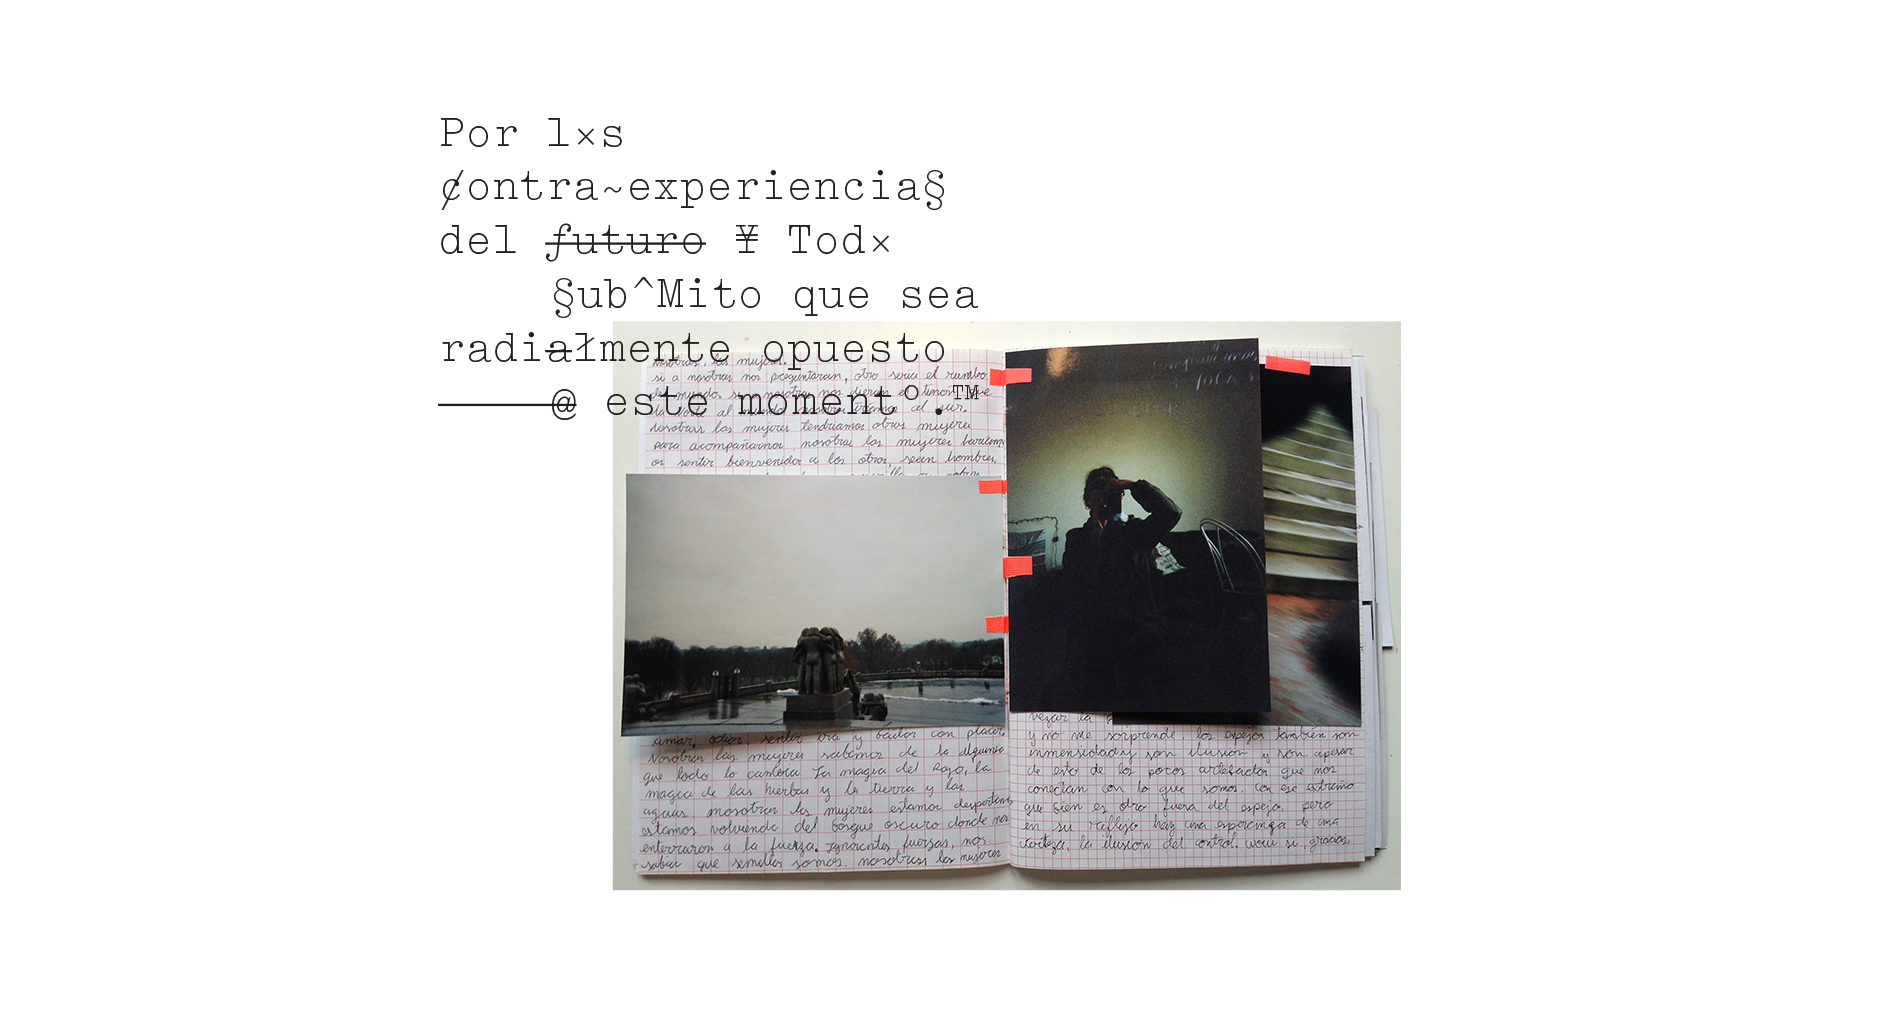 Por l×s
¢ontra~experiencia§
del ƒuturo ¥ Tod×
§ub^Mito que sea
radiałmente opuesto
@ este moment°.™
nosotras, las mujeres.
si a nosotras nos preguntaran, otro seria el rumbo
del mundo. si a nosotras nos dieran el timón
al mundo al sur.
nosotras las mujeres tendriamos otras mujeres
para acompañarnos, nosotras las mujeres
sentir bienvenidos a los otros, sean hombres,
amar, odiar, sentir ira y bailar con placer.
Nosotras las mujeres sabemos de la
que todo lo cambia. La magia del Rayo, la
magia de las hierbas y la tierra y las
aguas, nosotras las mujeres estamos despertando
estamos volviendo del bosque oscuro donde nos
enterraron a la fuerza. ignorantes fuerzas, nos
sabia que semillas somos. nosotras las mujeres
vezar la
y no me sorprende los espejos tambien son
inmensidad y son ilusion y son apesar
de esto de los pocos artefactos que nos
conectan con lo que somos. con ese extraño
que bien es otro fuera del espejo. pero
en su reflejo hay una esperanza de una
certeza. la ilusion del control. wow si, gracias